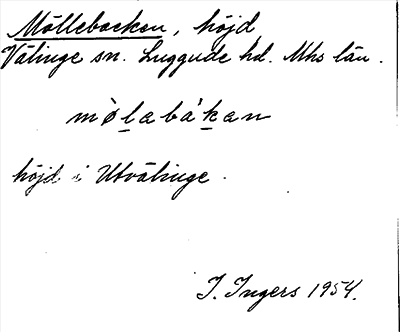 Möllebacken, höjd
Välinge sn. Luggude hd. Mhs län.
mø̀labákan
höjd i Utvälinge.
I. Ingers 1954.